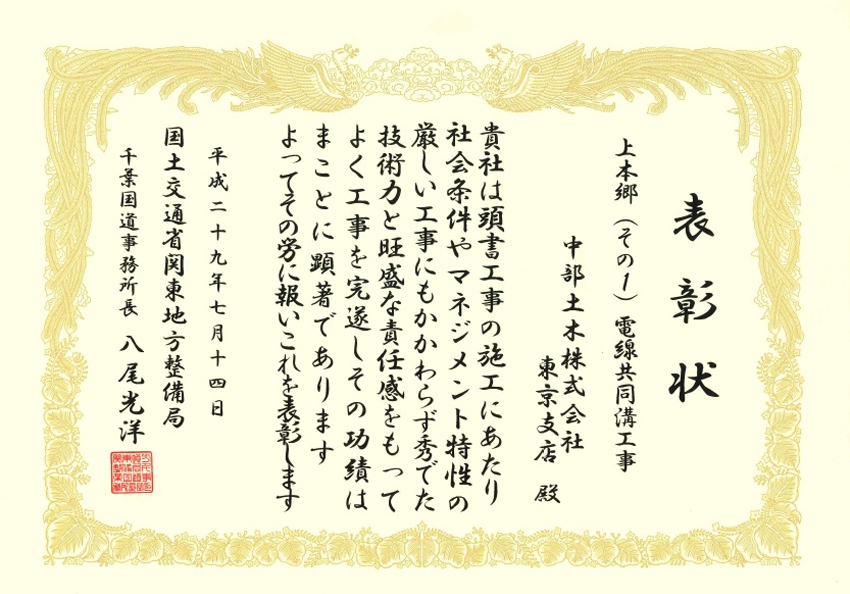 表彰状
上本郷（その1）電線共同溝工事
中部土木株式会社
東京支店 殿
貴社は頭書工事の施工にあたり
社会条件やマネジメント特性の
厳しい工事にもかかわらず秀でた
技術力と旺盛な責任感をもって
よく工事を完遂しその功績は
まことに顕著であります
よってその労に報いこれを表彰します
平成二十九年七月十四日
国土交通省関東地方整備局
千葉国道事務所長 八尾光洋